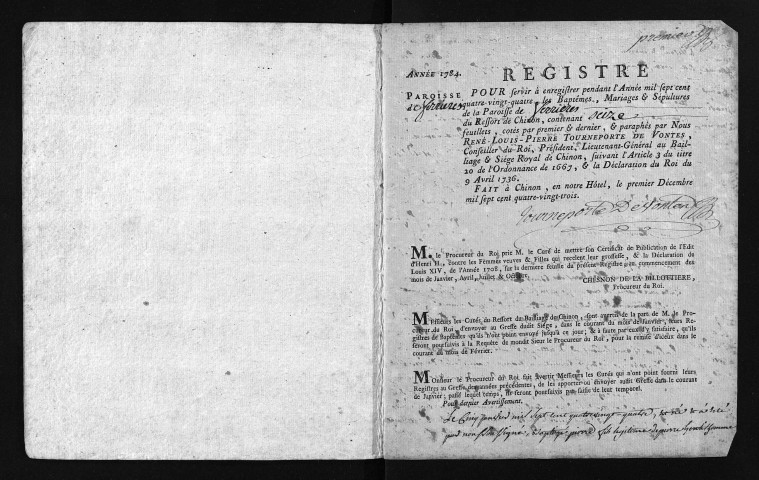 premier
ANNÉE 1784.
REGISTRE
PAROISSE
de Ferrieres
POUR servir à enregistrer pendant l'Année mil sept cent
quatre-vingt-quatre les Baptêmes, Mariages & Sépultures
de la Paroisse de
du Ressort de Chinon, contenant seize
feuillets, cotés par premier & dernier, & paraphés par Nous
RENÉ-LOUIS-PIERRE TOURNEPORTE DE VONTES,
Conseiller du Roi, Président, Lieutenant-Général au Bail-
liage & Siége Royal de Chinon, suivant l'Article 3 du titre
20 de l'Ordonnance de 1667, & la Déclaration du Roi du
9 Avril 1736.
FAIT à Chinon, en notre Hôtel, le premier Décembre
mil sept cent quatre-vingt-trois.
Tourneporte De Vontes
M. le Procureur du Roi prie M. le Curé de mettre son Certificat de Publication de l'Edit
d'Henri II, contre les Femmes veuves & Filles qui recelent leur grossesse, & la Déclaration de
Louis XIV, de l'Année 1708, sur la derniere feuille du présent Registre, au commencement des
mois de Janvier, Avril, Juillet & Octobre.
CHESNON DE LA BILLOTTIERE,
Procureur du Roi.
MESSIEURS les Curés du Ressort du Bailliage de Chinon, sont avertis de la part de M. le Pro-
cureur du Roi, d'envoyer au Greffe dudit Siége, dans le courant du mois de Janvier, leurs Re-
gistres de Baptêmes qu'ils n'ont point envoyé jusqu'à ce jour; & à faute par eux d'y satisfaire, qu'ils
seront poursuivis à la Requête de mondit Sieur le Procureur du Roi, pour la remise d'iceux dans le
courant du mois de Février.
MONSIEUR le Procureur du Roi fait avertir Messieurs les Curés qui n'ont point fourni leurs
Registres au Greffe des années précédentes, de les apporter ou envoyer audit Greffe dans le courant
de Janvier; passé lequel temps, ils seront poursuivis par saisie de leur temporel.
Pour dernier Avertissement.
Le Cinq janvier mil Sept Cent quatre vingt quatre, est né & a été
par nous Signé, Baptisé pierre fils legitime de pierre